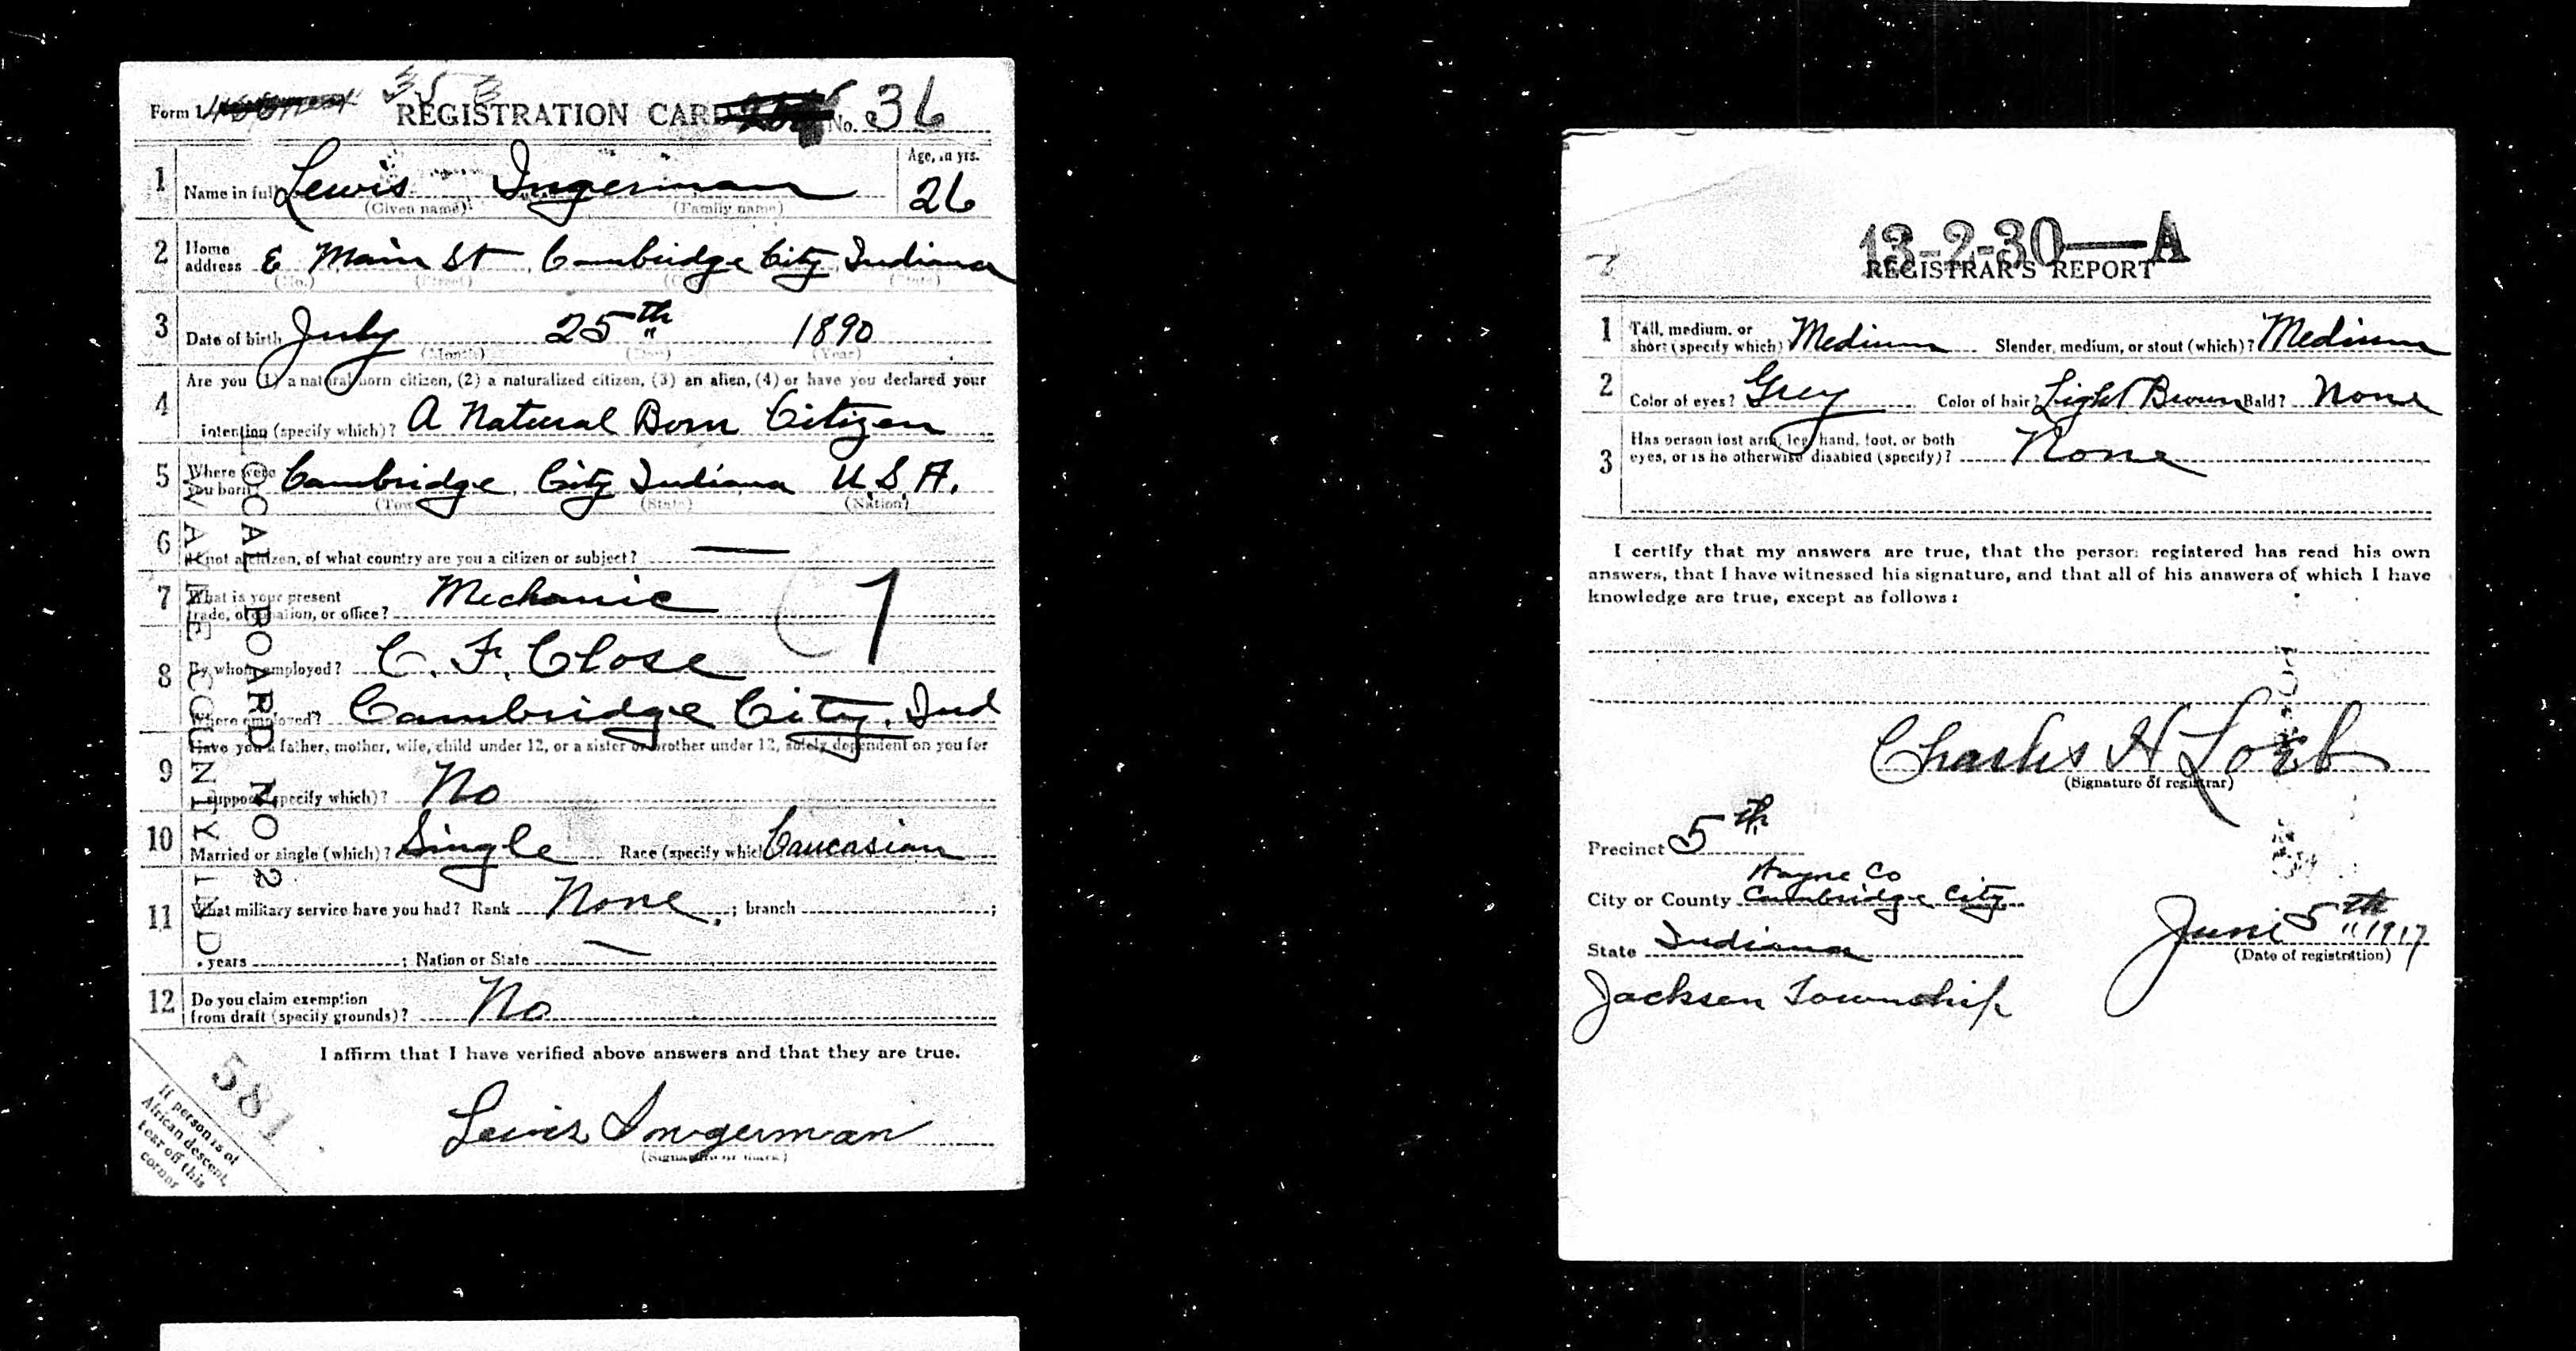 Form 1 353 REGISTRATION CARD No. 36
1 Name in full Lewis Ingerman Age, in yrs.
(Given name) (Family name) 26
2 Home address E Main St Cambridge City Indiana
(No.) (Street) (State)
3 Date of birth July 25th 1890
(Month) (Day) (Year)
4 Are you (1) a natural born citizen, (2) a naturalized citizen, (3) an alien, (4) or have you declared your
intention (specify which)? A Natural Born Citizen
5 Where were you born? Cambridge City Indiana U.S.A.
(Town) (State) (Nation)
6 If not a citizen, of what country are you a citizen or subject? —
7 What is your present trade, occupation, or office? Mechanic
1
8 By whom employed? C. F. Close
Where employed? Cambridge City, Ind
9 Have you a father, mother, wife, child under 12, or a sister or brother under 12, solely dependent on you for
support (specify which)? No
10 Married or single (which)? Single Race (specify which) Caucasian
11 What military service have you had? Rank None ; branch ;
years ; Nation or State —
12 Do you claim exemption from draft (specify grounds)? No
I affirm that I have verified above answers and that they are true.
Lewis Ingerman
(Signature or mark)
LOCAL BOARD NO 2
WAYNE COUNTY IND.
581
If person is of
African descent,
tear off this
corner
13-2-30—A
REGISTRAR'S REPORT
1 Tall, medium, or short (specify which) Medium Slender, medium, or stout (which)? Medium
2 Color of eyes? Grey Color of hair? Light Brown Bald? None
3 Has person lost arm, leg, hand, foot, or both
eyes, or is he otherwise disabled (specify)? None
I certify that my answers are true, that the person registered has read his own
answers, that I have witnessed his signature, and that all of his answers of which I have
knowledge are true, except as follows:
Charles H
(Signature of registrar)
Precinct 5th
Wayne Co
City or County Cambridge City
State Indiana
June 5th 1917
(Date of registration)
Jackson Township